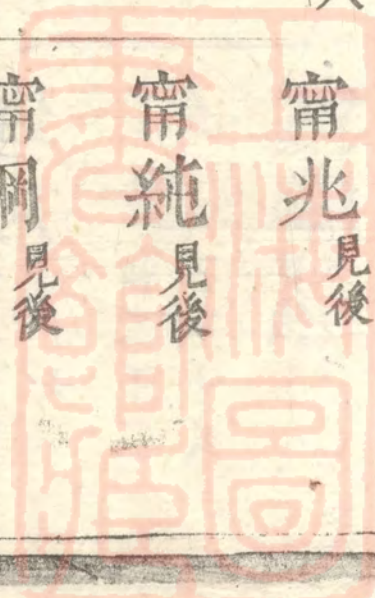 甯兆見後
甯純見後
甯綱見後